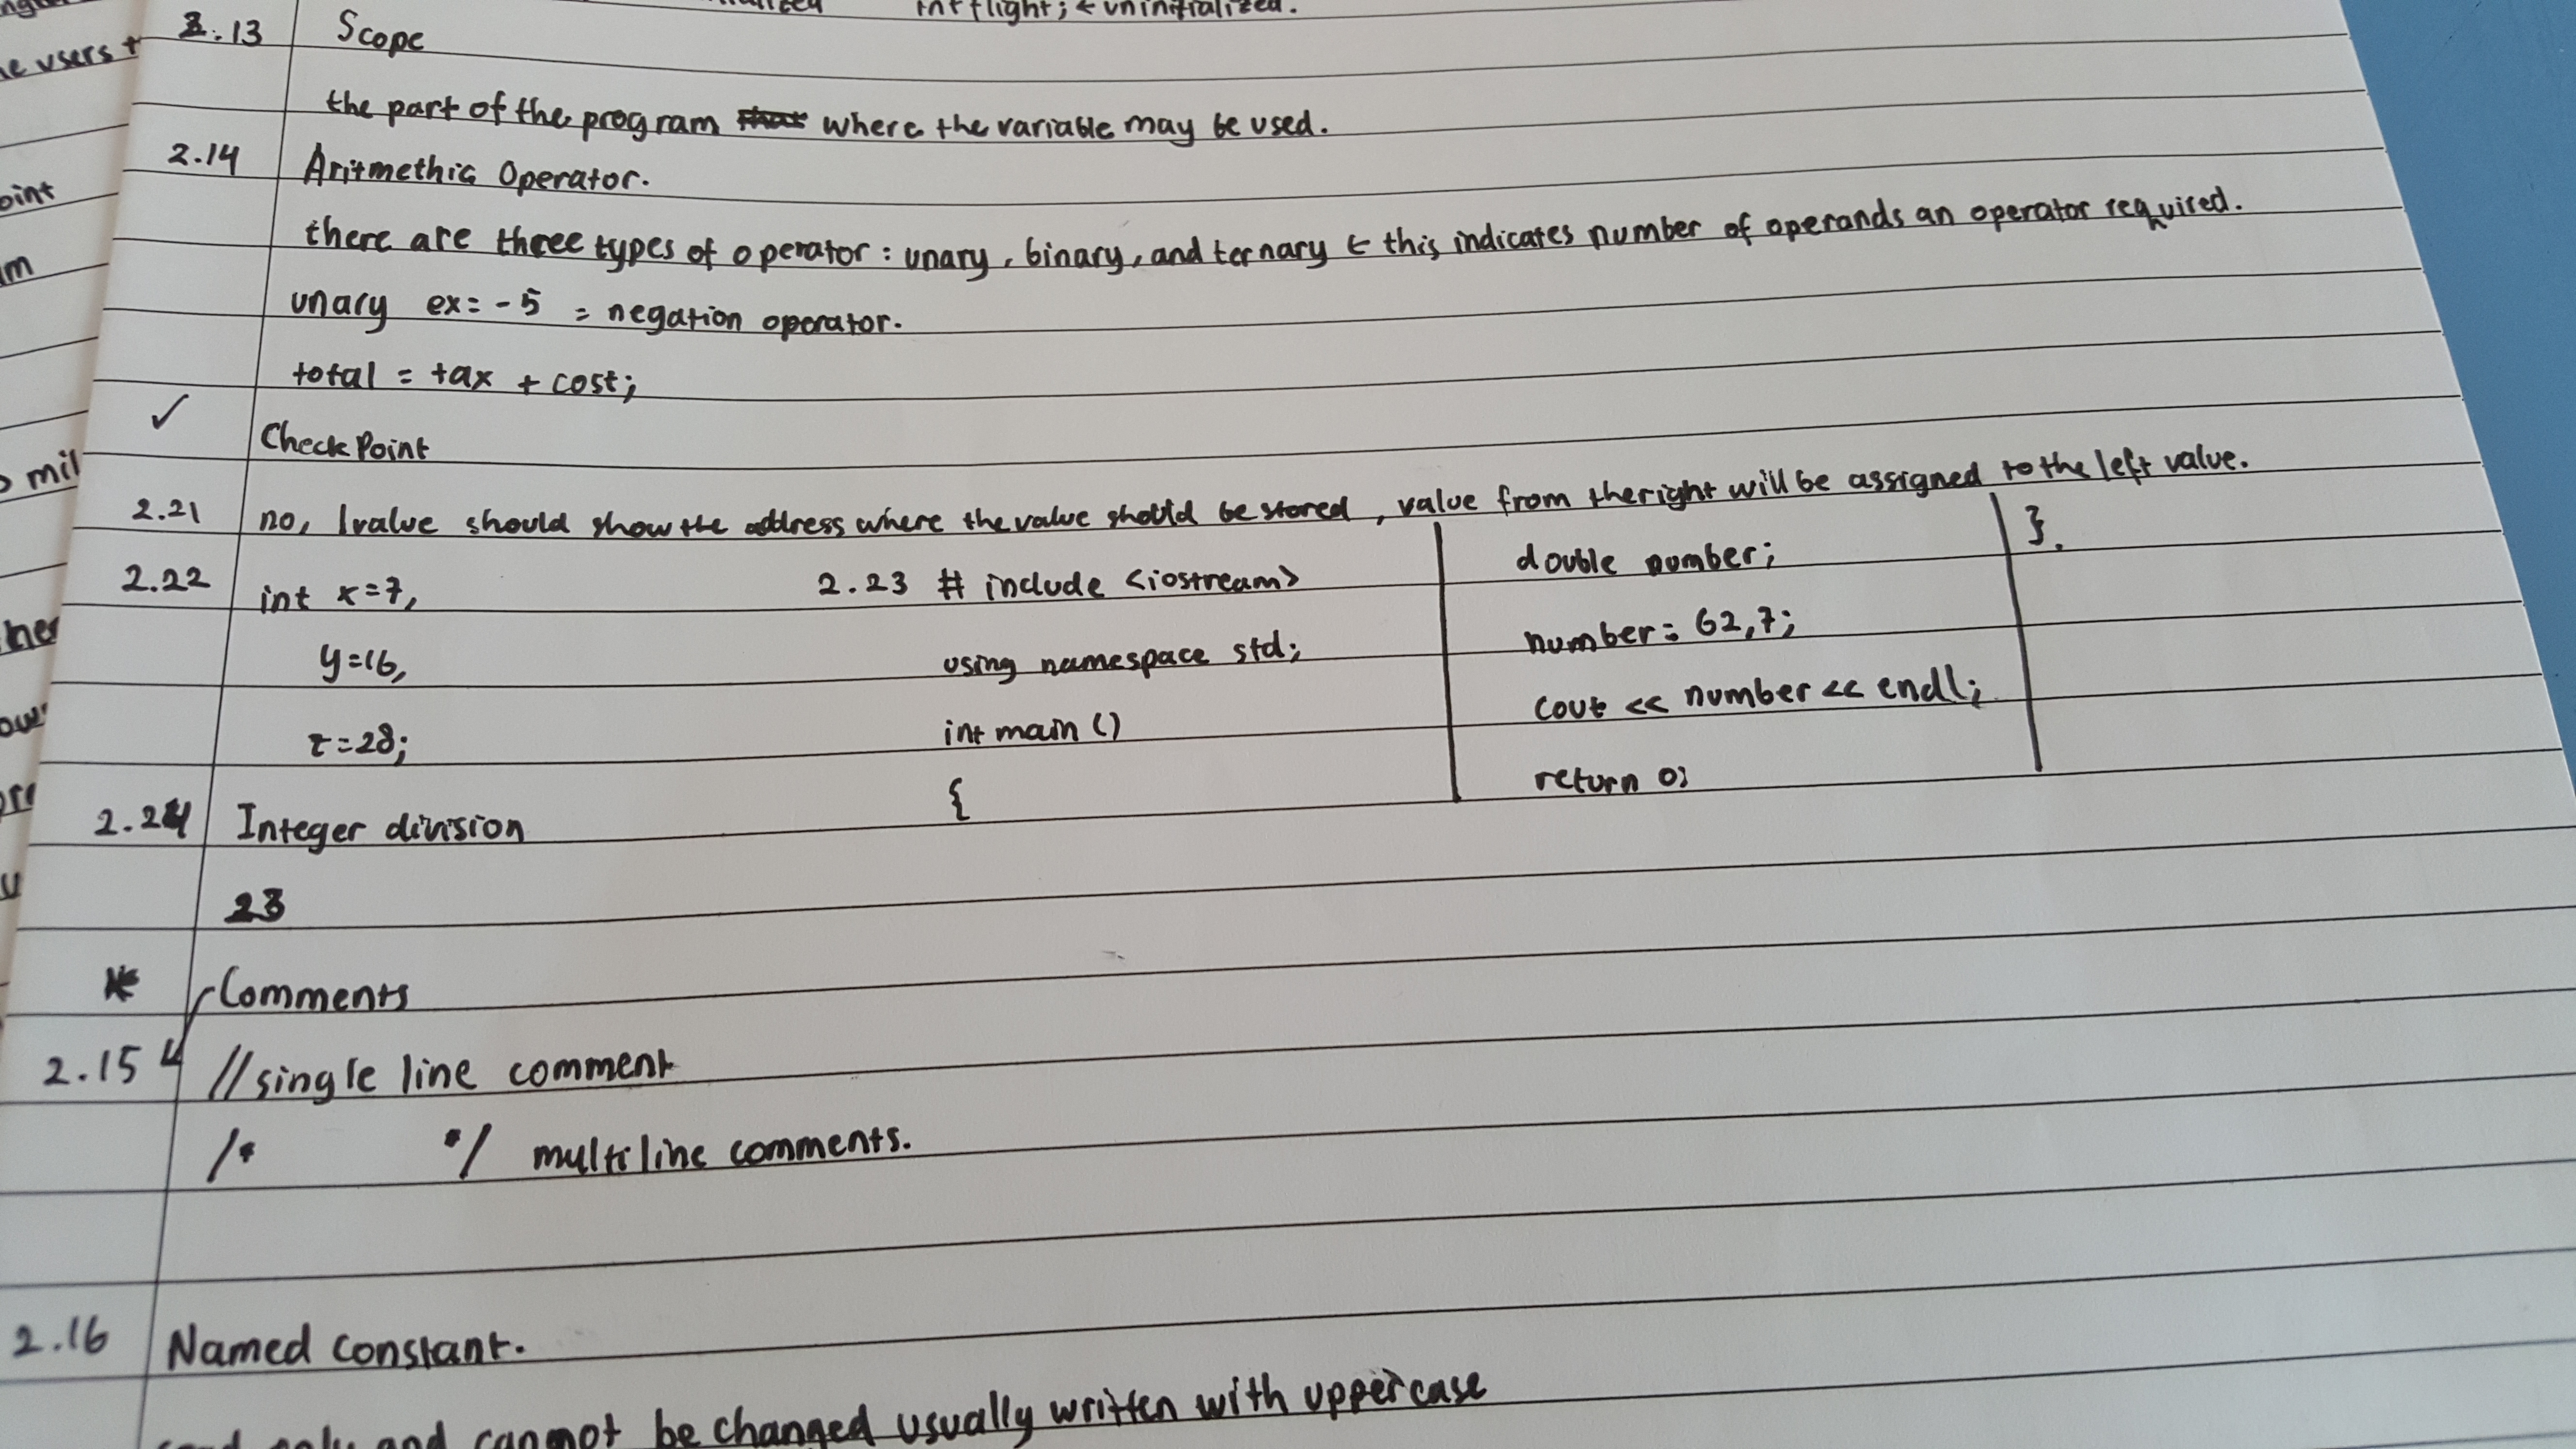 int flight; ← uninitialized.
2.13 Scope
the part of the program where the variable may be used.
2.14 Aritmethic Operator.
there are three types of operator: unary, binary, and ternary ← this indicates number of operands an operator required.
unary ex= -5 = negation operator.
total = tax + cost;
✓ CheckPoint
2.21 no, lvalue should show the address where the value should be stored, value from the right will be assigned to the left value.
2.22 int x=7,
y=16,
z=28;
2.23 # include <iostream>
using namespace std;
int main ()
{
double number;
number = 62,7;
cout << number << endl;
return 0;
}.
2.24 Integer division
23
* Comments
2.15 //single line comment
/* */ multiline comments.
2.16 Named constant.
only and cannot be changed usually written with uppercase
e users +
oint
m
mil
her
ow